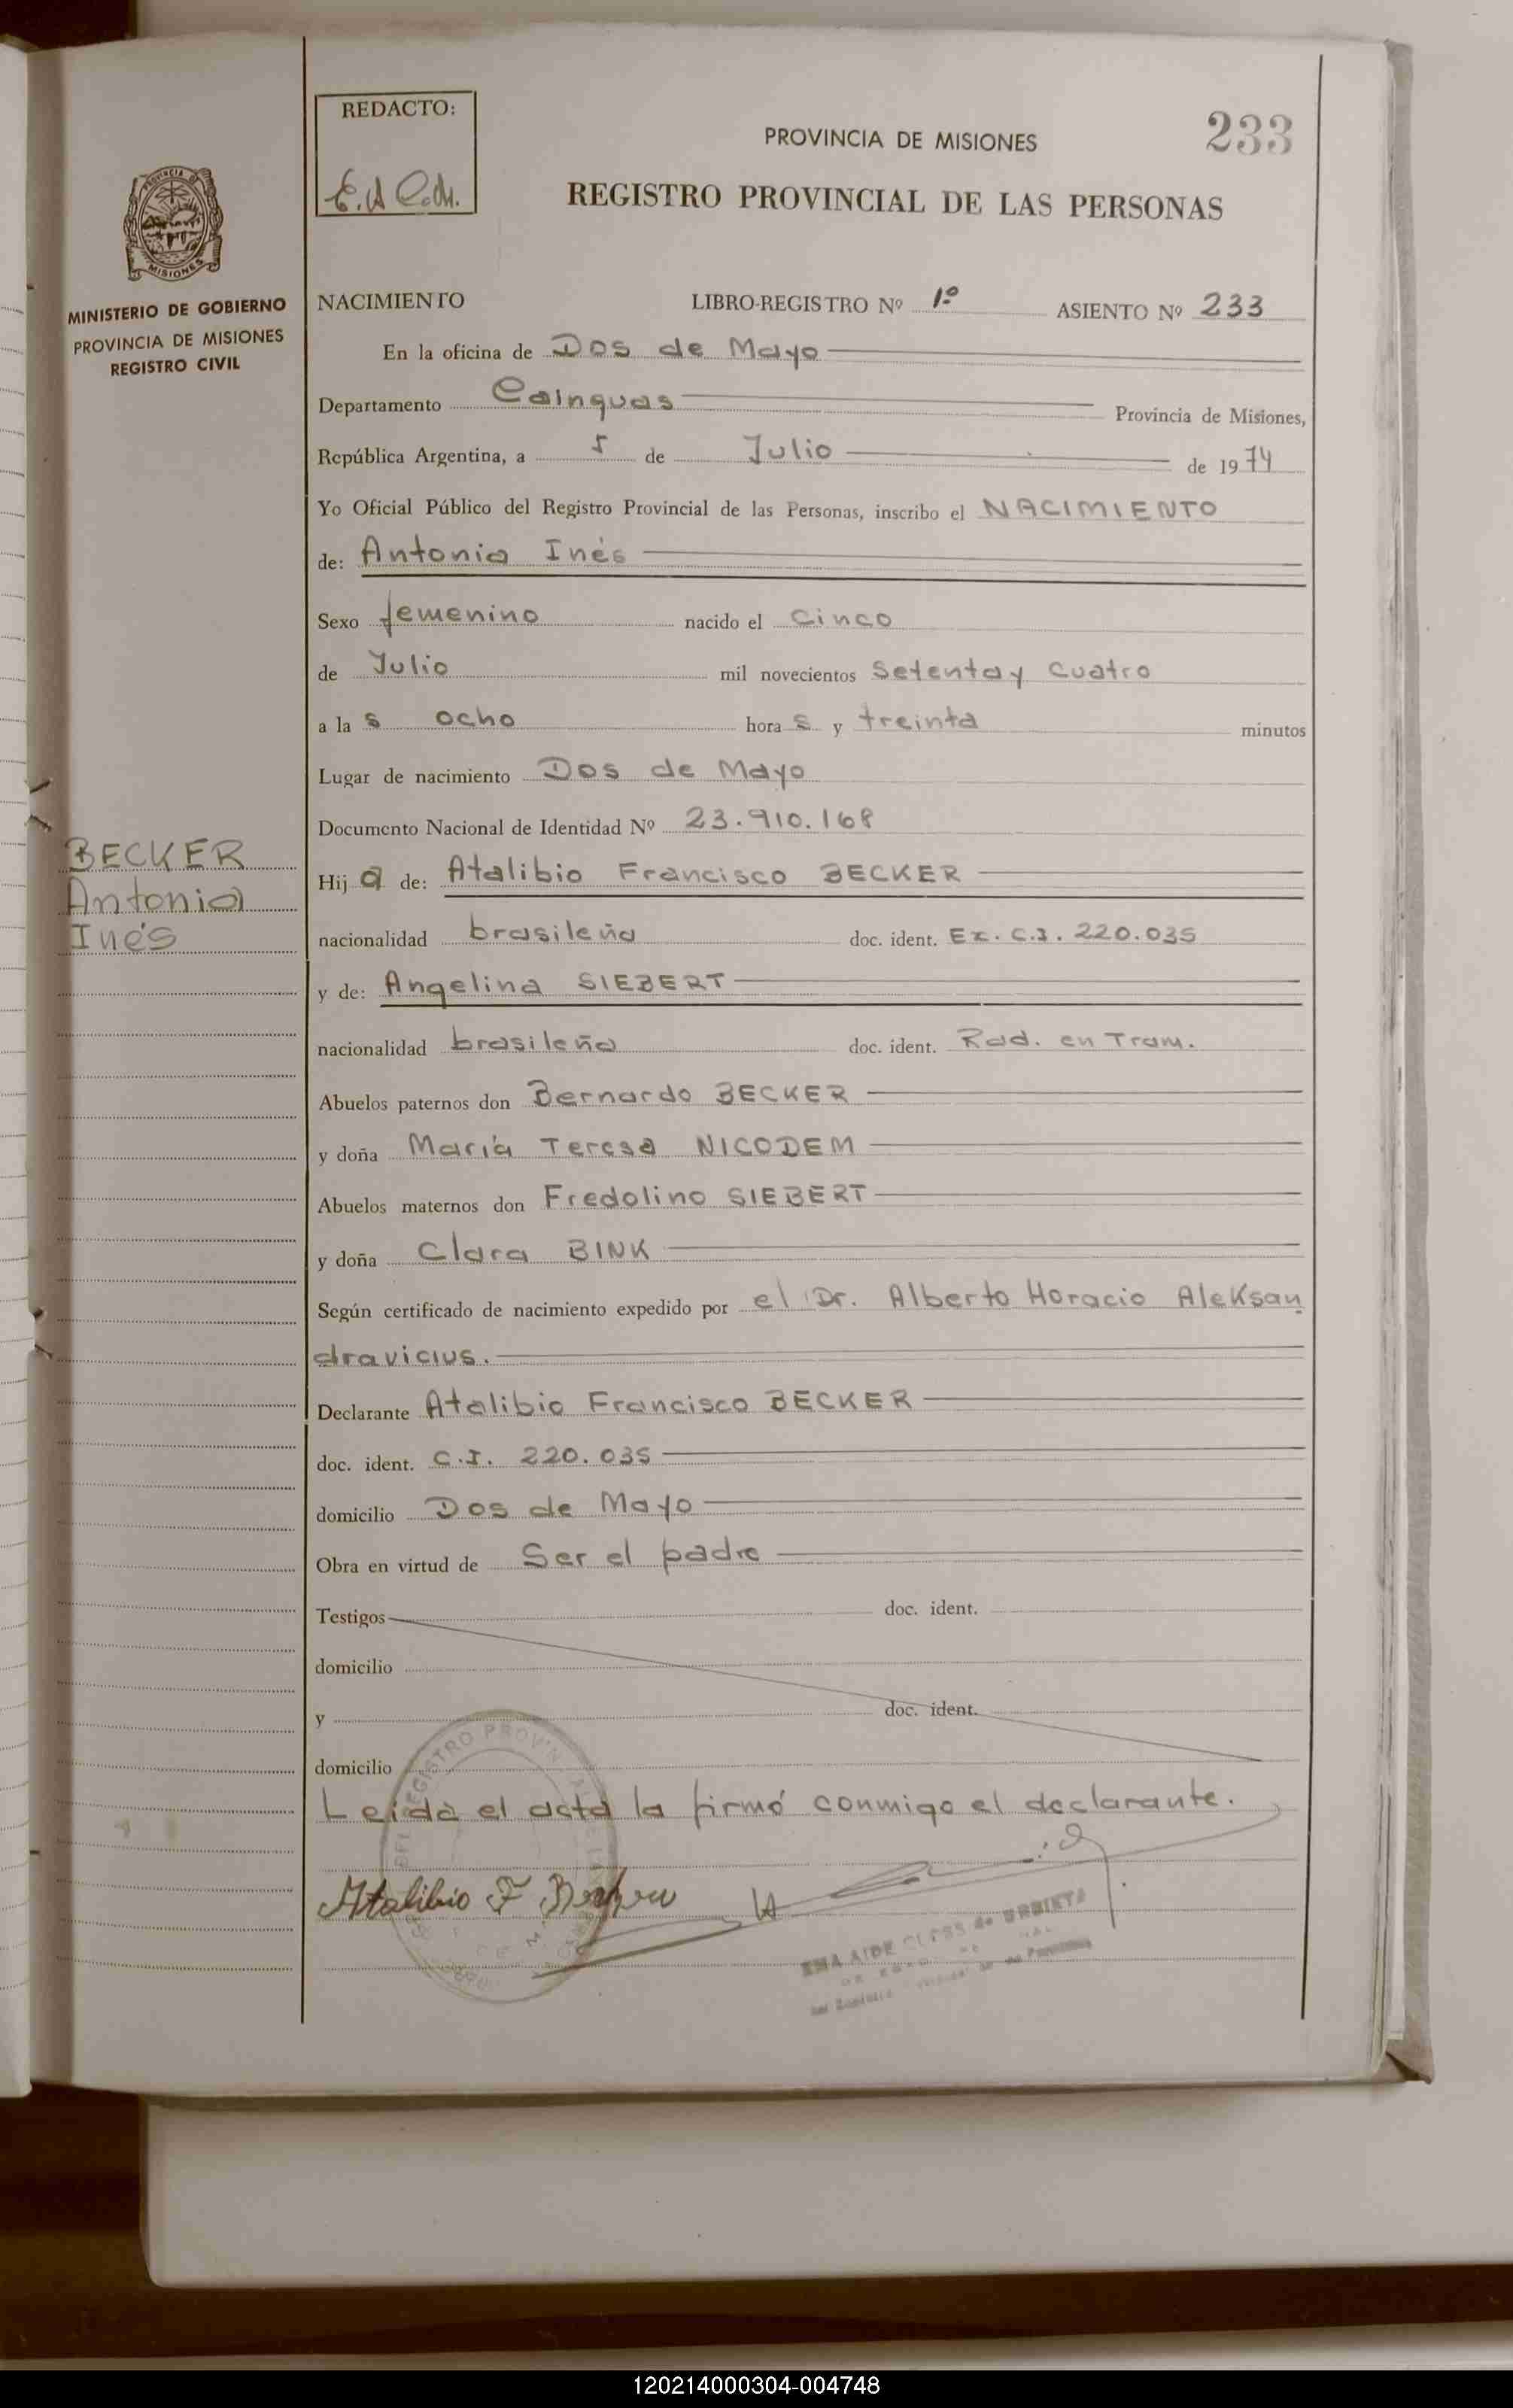 REDACTO:
PROVINCIA DE MISIONES
233
REGISTRO PROVINCIAL DE LAS PERSONAS
PROVINCIA DE
MISIONES
MINISTERIO DE GOBIERNO
PROVINCIA DE MISIONES
REGISTRO CIVIL
NACIMIENTO LIBRO-REGISTRO Nº 1º ASIENTO Nº 233
En la oficina de Dos de Mayo
Departamento Cainguas Provincia de Misiones,
República Argentina, a 5 de Julio de 1974
Yo Oficial Público del Registro Provincial de las Personas, inscribo el NACIMIENTO
de: Antonia Inés
Sexo femenino nacido el cinco
de Julio mil novecientos Setenta y cuatro
a las ocho horas y treinta minutos
Lugar de nacimiento Dos de Mayo
Documento Nacional de Identidad Nº 23.910.168
BECKER
Antonia
Inés
Hija de: Atalibio Francisco BECKER
nacionalidad brasileña doc. ident. Ex. C.I. 220.035
y de: Angelina SIEBERT
nacionalidad brasileña doc. ident. Rad. en Tram.
Abuelos paternos don Bernardo BECKER
y doña María Teresa NICODEM
Abuelos maternos don Fredolino SIEBERT
y doña Clara BINK
Según certificado de nacimiento expedido por el Dr. Alberto Horacio Aleksan
dravicius.
Declarante Atalibio Francisco BECKER
doc. ident. C.I. 220.035
domicilio Dos de Mayo
Obra en virtud de Ser el padre
Testigos doc. ident.
domicilio
y doc. ident.
domicilio
Leída el acta la firmó conmigo el declarante.
Atalibio F Becker
120214000304-004748